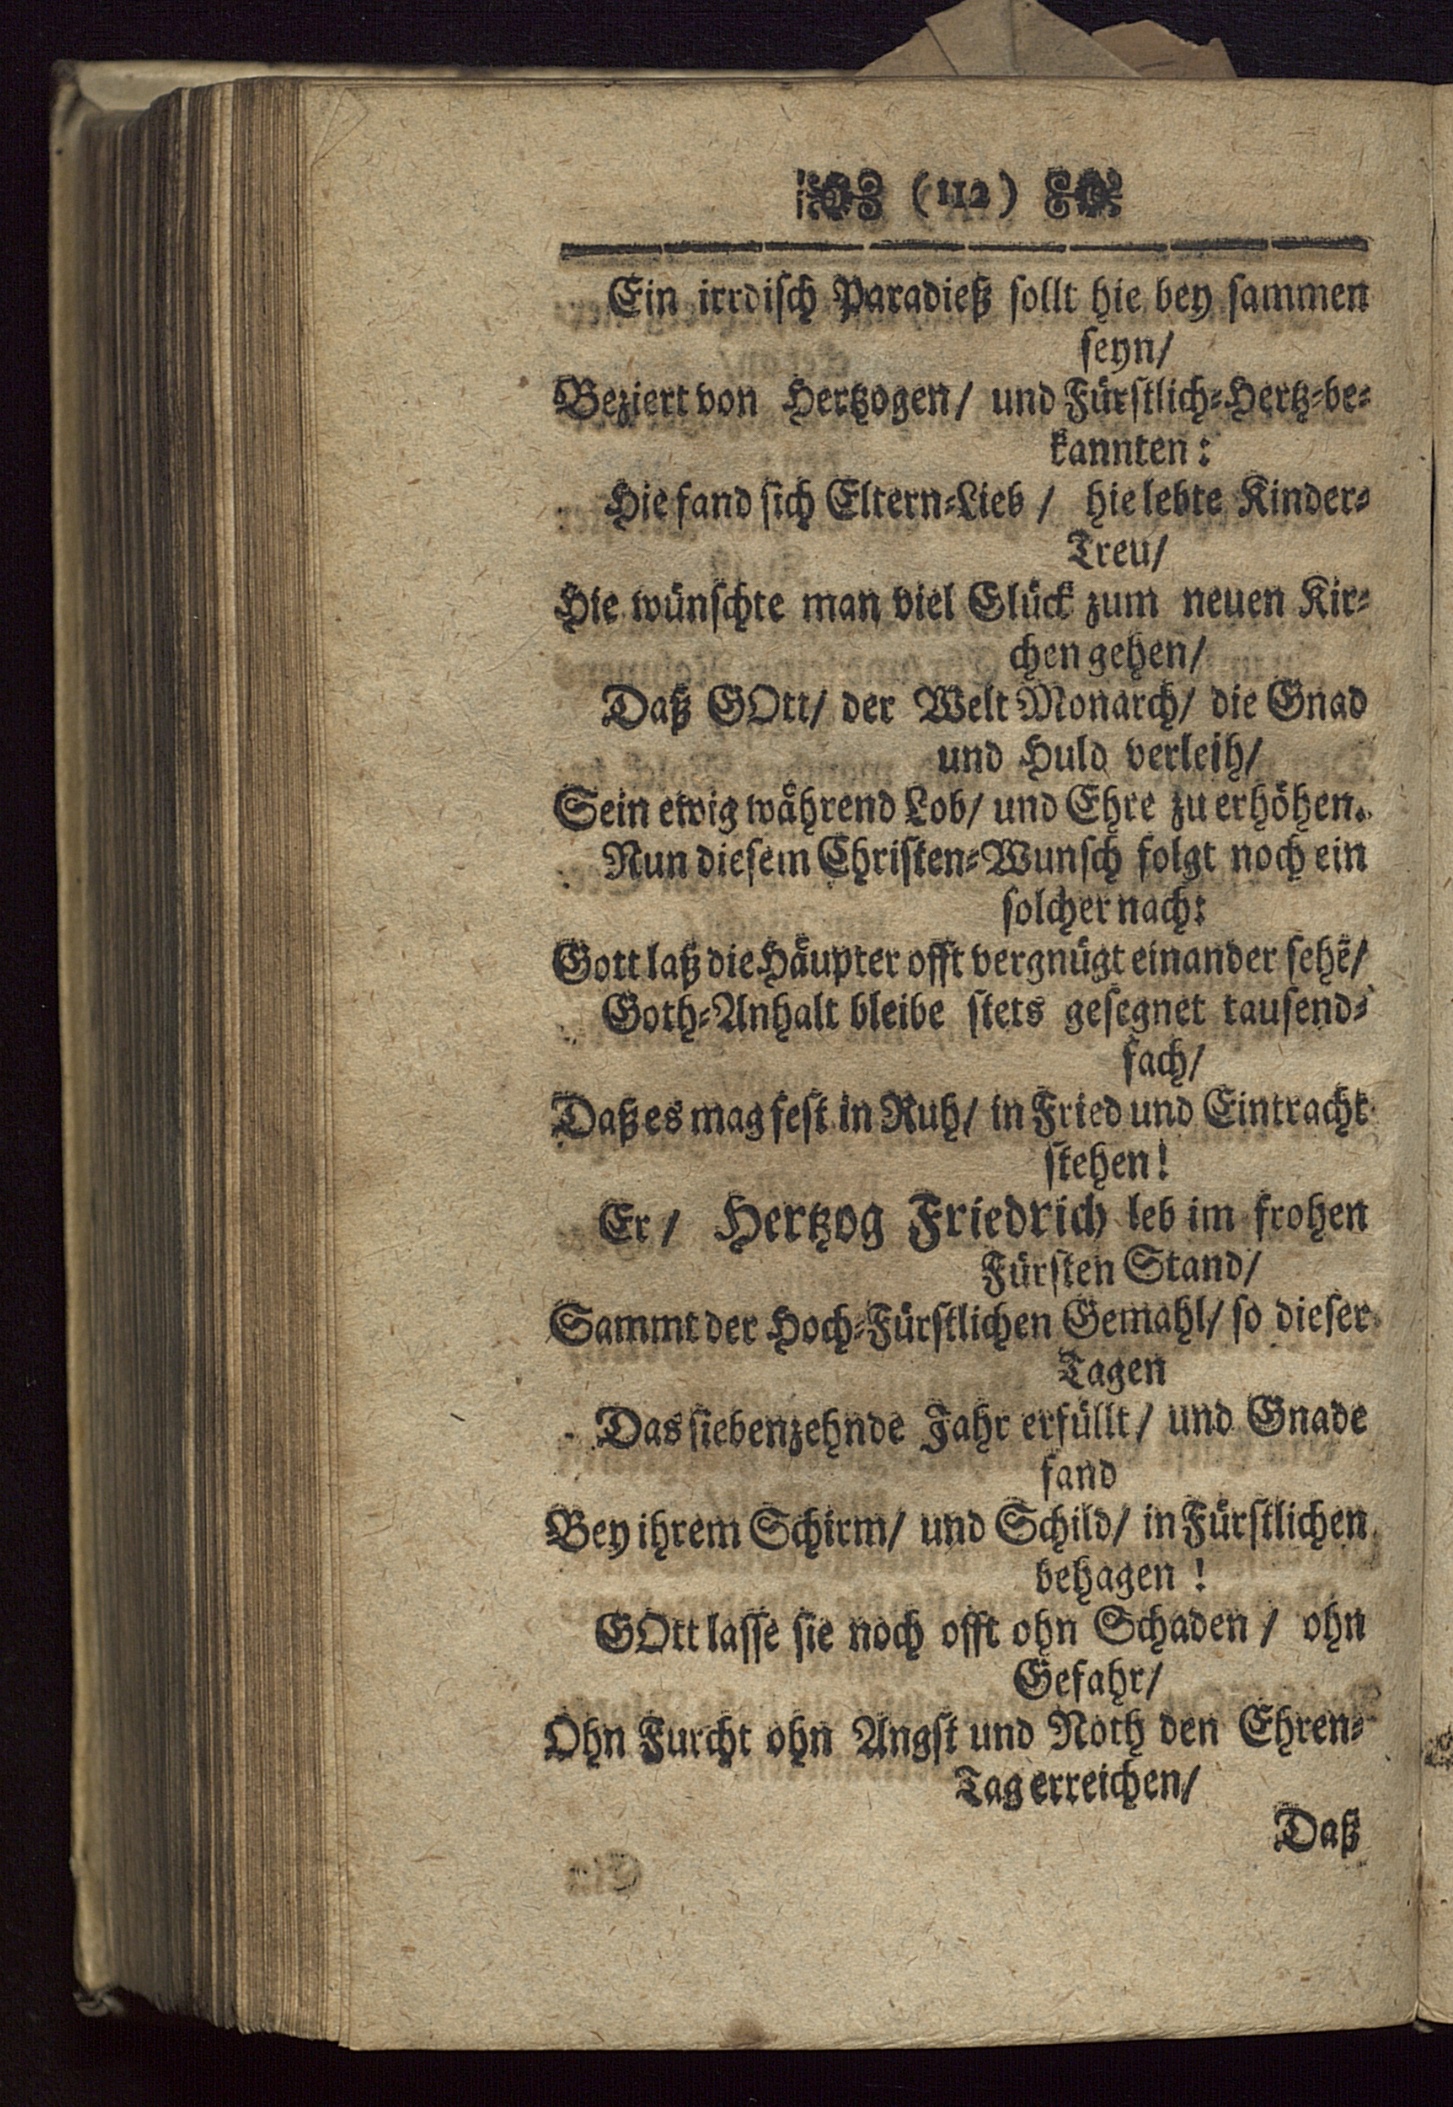 (112)
Ein irrdisch Paradieß sollt hie bey sammen
seyn/
Beziert von Hertzogen/ und Fürstlich-Hertz-be-
kannten:
Hie fand sich Eltern-Lieb / hie lebte Kinder-
Treu/
Hie wünschte man viel Glück zum neuen Kir-
chen gehen/
Daß GOtt/ der Welt Monarch/ die Gnad
und Huld verleih/
Sein ewig während Lob/ und Ehre zu erhöhen.
Nun diesem Christen-Wunsch folgt noch ein
solcher nach:
Gott laß die Häupter offt vergnügt einander sehẽ/
Goth-Anhalt bleibe stets gesegnet tausend-
fach/
Daß es mag fest in Ruh/ in Fried und Eintracht
stehen!
Er/ Hertzog Friedrich leb im frohen
Fürsten Stand/
Sammt der Hoch-Fürstlichen Gemahl/ so dieser
Tagen
Das siebenzehnde Jahr erfüllt/ und Gnade
fand
Bey ihrem Schirm/ und Schild/ in Fürstlichen
behagen !
GOtt lasse sie noch offt ohn Schaden / ohn
Gefahr/
Ohn Furcht ohn Angst und Noth den Ehren-
Tag erreichen/
Daß